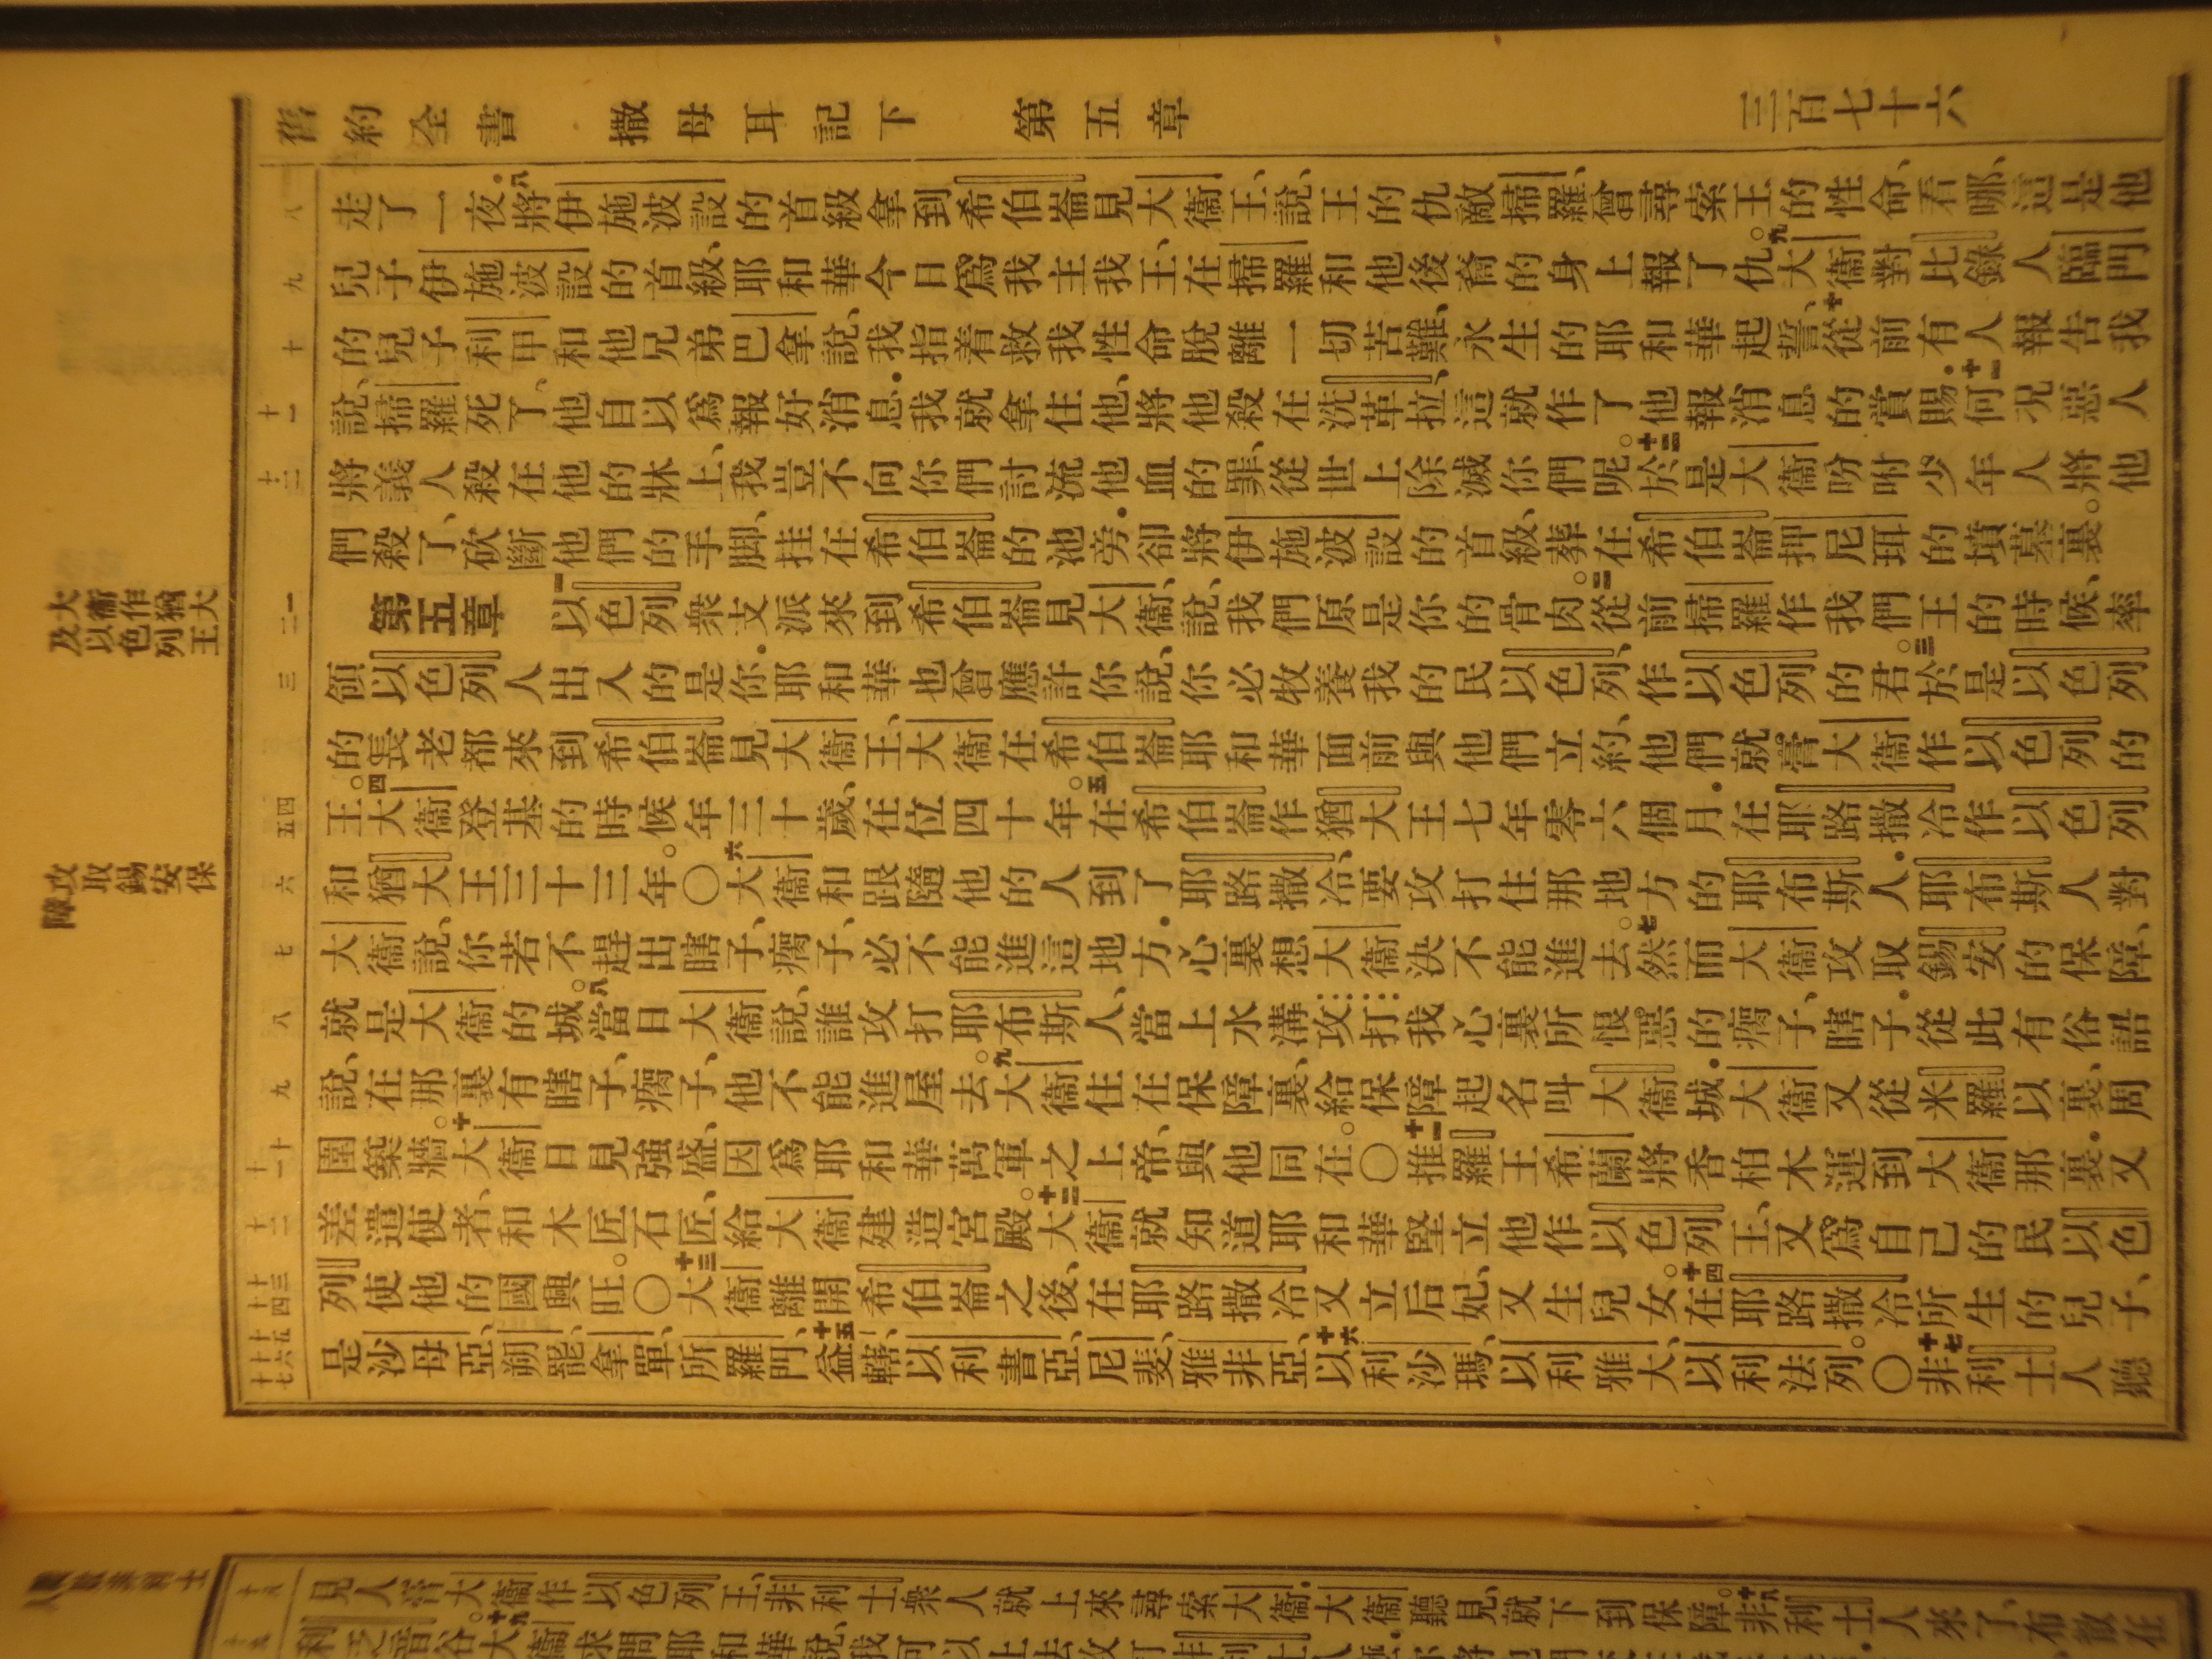 舊約全書 撒母耳記下 第五章 三百七十六
走了一夜.八將伊施波設的首級拿到希伯崙見大衞王、說、王的仇敵掃羅、曾尋索王的性命、看哪、這是他
兒子伊施波設的首級、耶和華今日爲我主我王、在掃羅和他後裔的身上報了仇。九大衞對比錄人臨門
的兒子利甲和他兄弟巴拿說、我指着救我性命脫離一切苦難、永生的耶和華起誓、十從前有人報告我
說、掃羅死了、他自以爲報好消息.我就拿住他、將他殺在洗革拉、這就作了他報消息的賞賜.十一何况惡人
將義人殺在他的牀上、我豈不向你們討流他血的罪、從世上除滅你們呢。十二於是大衞吩咐少年人將他
們殺了、砍斷他們的手脚、挂在希伯崙的池旁.卻將伊施波設的首級、葬在希伯崙押尼珥的墳墓裏。
第五章 一以色列衆支派來到希伯崙見大衞、說、我們原是你的骨肉。二從前掃羅作我們王的時候、率
領以色列人出入的是你.耶和華也曾應許你說、你必牧養我的民以色列、作以色列的君。三於是以色列
的長老都來到希伯崙見大衞王、大衞在希伯崙耶和華面前與他們立約、他們就膏大衞作以色列的
王。四大衞登基的時候年三十歲、在位四十年。五在希伯崙作猶大王七年零六個月.在耶路撒冷作以色列
和猶大王三十三年。○六大衞和跟隨他的人到了耶路撒冷、要攻打住那地方的耶布斯人.耶布斯人對
大衞說、你若不趕出瞎子、瘸子、必不能進這地方.心裏想大衞決不能進去。七然而大衞攻取錫安的保障、
就是大衞的城。八當日大衞說、誰攻打耶布斯人、當上水溝攻打我心裏所恨惡的瘸子、瞎子.從此有俗語
說、在那裏有瞎子、瘸子、他不能進屋去。九大衞住在保障裏、給保障起名叫大衞城.大衞又從米羅以裏、周
圍築牆。十大衞日見強盛、因爲耶和華萬軍之上帝、與他同在。○十一推羅王希蘭將香柏木運到大衞那裏.又
差遣使者、和木匠石匠、給大衞建造宮殿。十二大衞就知道耶和華堅立他作以色列王、又爲自己的民以色
列使他的國興旺。○十三大衞離開希伯崙之後、在耶路撒冷又立后妃、又生兒女。十四在耶路撒冷所生的兒子、
是沙母亞、朔罷、拿單、所羅門、十五益轄、以利書亞、尼斐、雅非亞、十六以利沙瑪、以利雅大、以利法列。○十七非利士人聽
大衞作猶大
及以色列王
攻取錫安保
障
見人膏大衞作以色列王、非利士衆人就上來尋索大衞.大衞聽見、就下到保障。十八非利士人來了、布散在